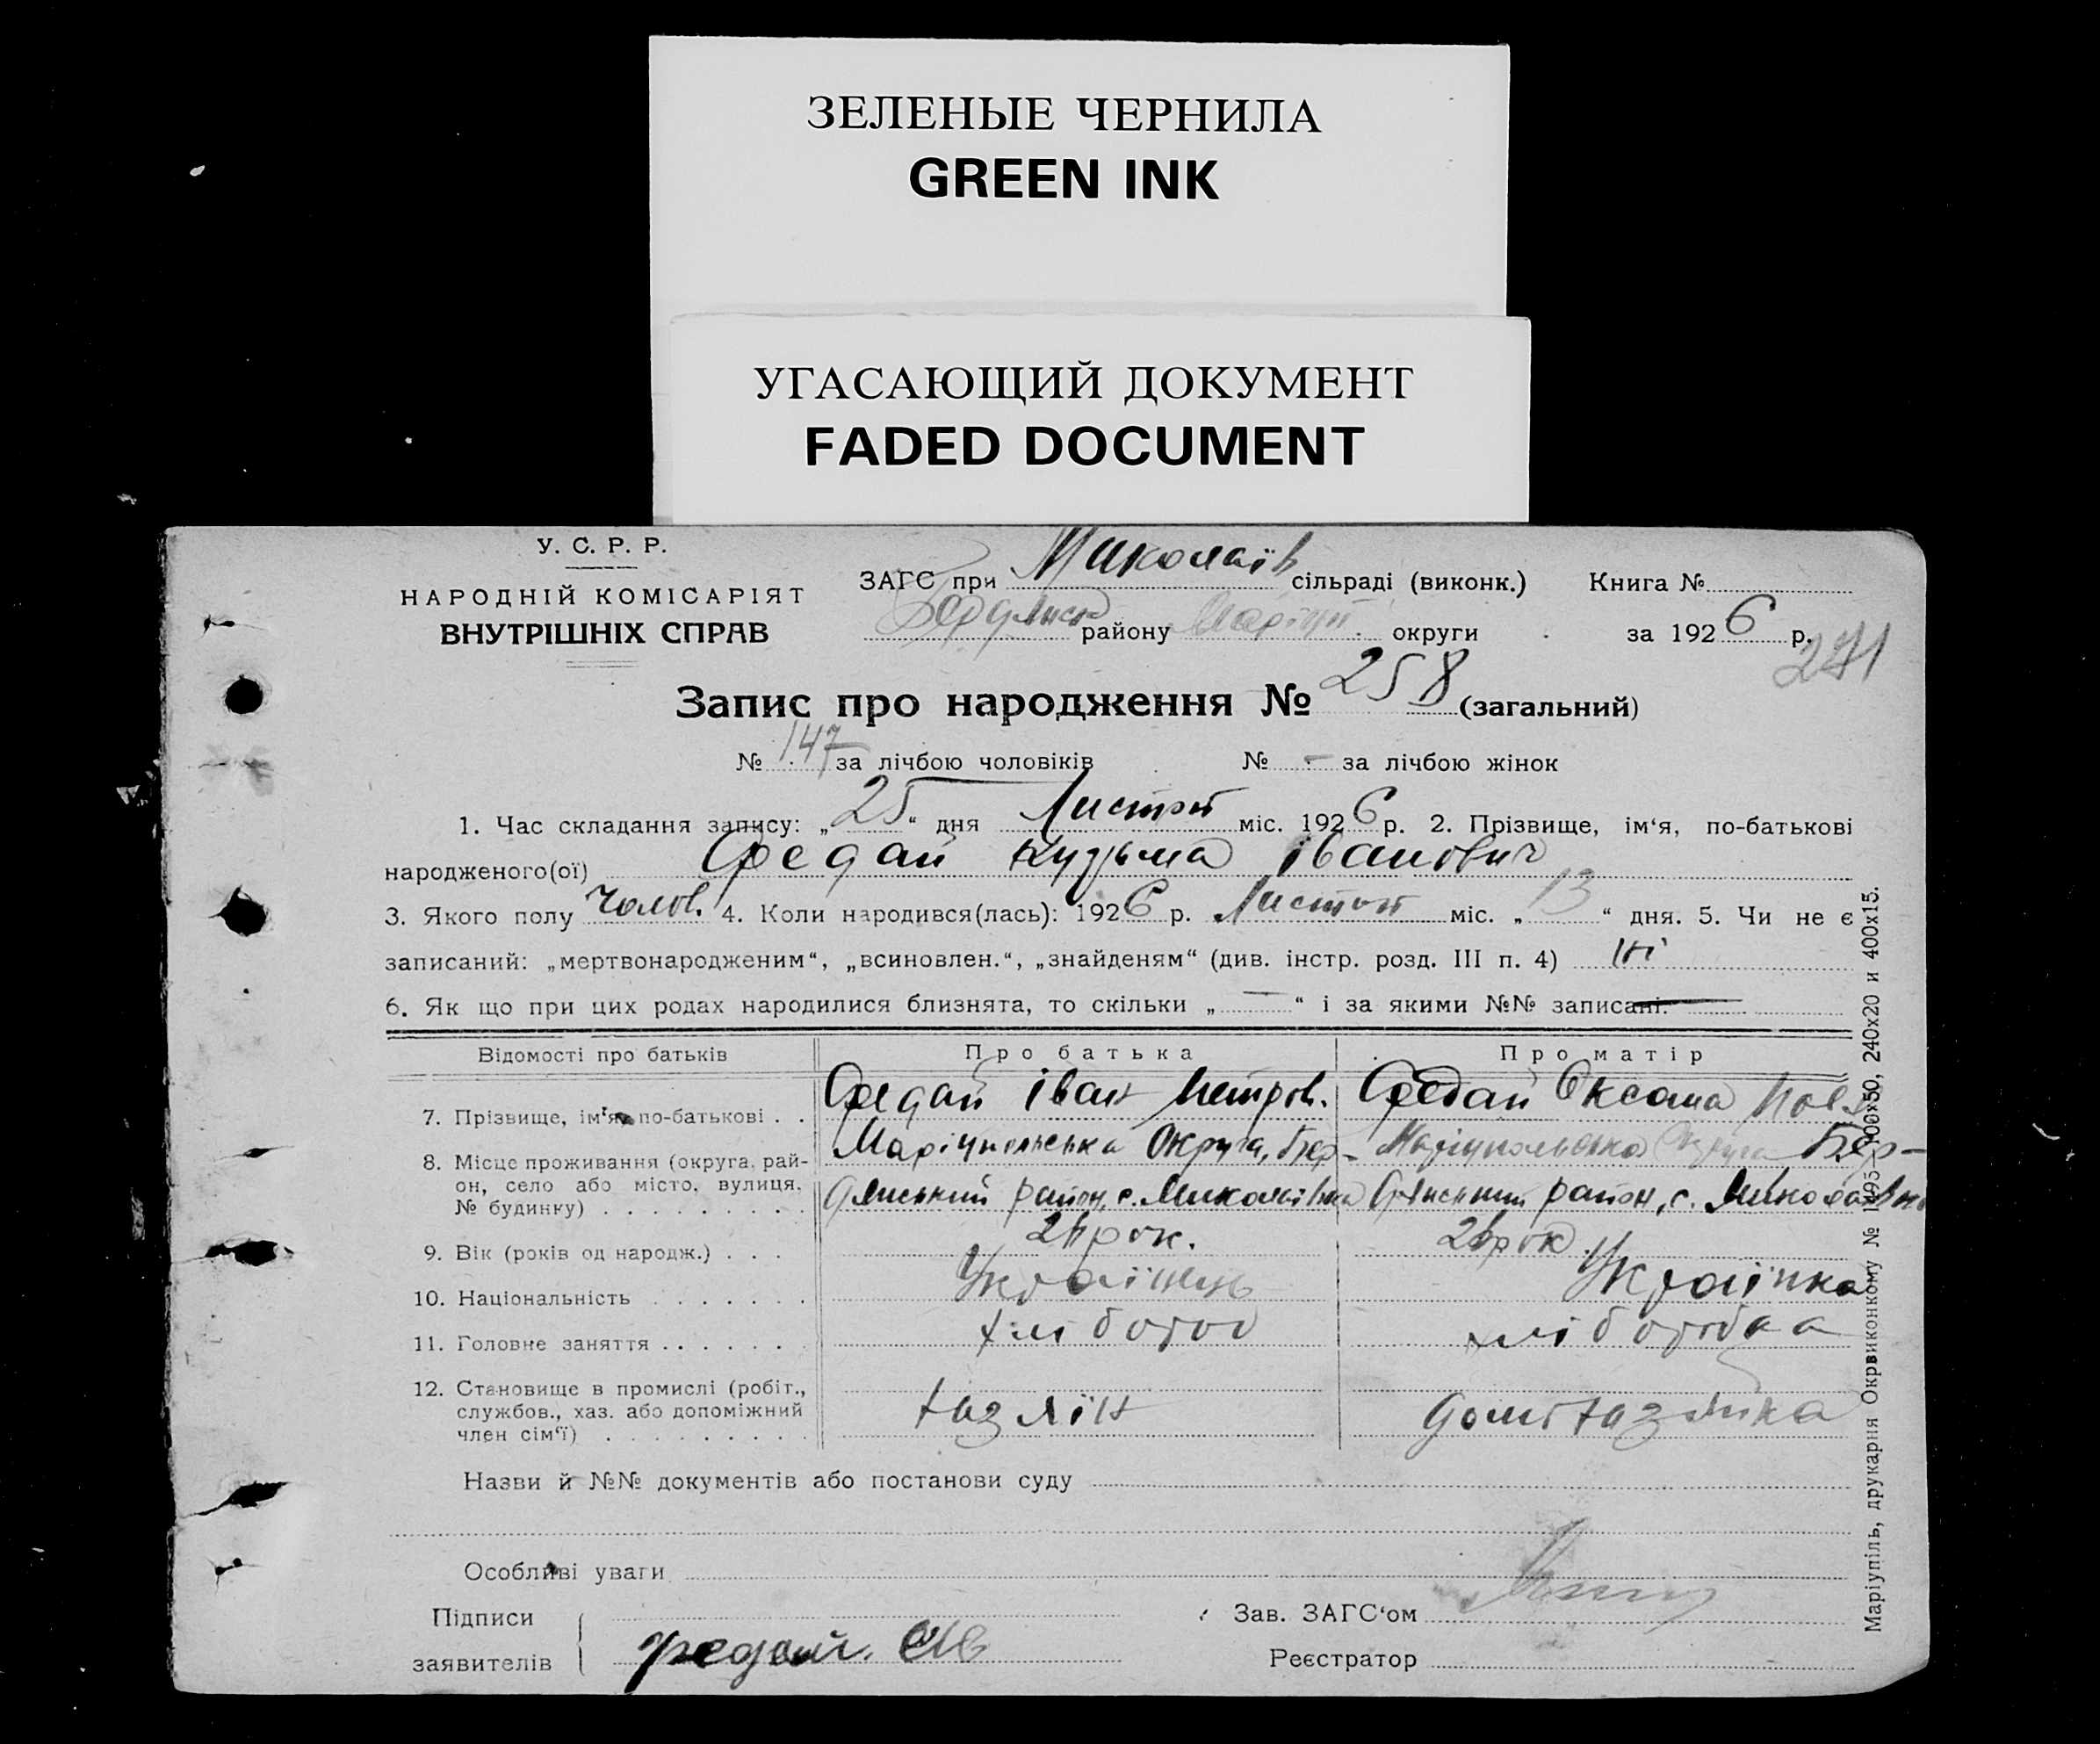 ЗЕЛЕНЫЕ ЧЕРНИЛА
GREEN INK
УГАСАЮЩИЙ ДОКУМЕНТ
FADED DOCUMENT
У. С. Р. Р.
НАРОДНІЙ КОМІСАРІЯТ
ВНУТРІШНІХ СПРАВ
ЗАГС при Миколаїв сільраді (виконк.) Книга №
Бердянськ району Маріуп округи за 1926 р.
271
Запис про народження № 258 (загальний)
№ 147 за лічбою чоловіків № - за лічбою жінок
1. Час складання запису: „25“ дня Листоп міс. 1926 р. 2. Прізвище, ім‘я, по-батькові
народженого(ої) Федай Кузьма Іванович
3. Якого полу Чолов. 4. Коли народився(лась): 1926 р. Листоп міс. „13“ дня. 5. Чи не є
записаний: „мертвонародженим“, „всиновлен.“, „знайденям“ (див. інстр. розд. III п. 4) ні
6. Як що при цих родах народилися близнята, то скільки „—“ і за якими №№ записані.
Відомості про батьків Про батька Про матір
7. Прізвище, ім‘я, по-батькові . . Федай Іван Петров. Федай Оксана
8. Місце проживання (округа, рай- Маріупольська Округа, Бер- Маріупольська Округа Бер-
он, село або місто, вулиця, дянський район, с. Миколаївка дянський район, с. Миколаївка
№ будинку)
9. Вік (років од народж.) . . . рок. рок.
10. Національність Українець Українка
11. Головне заняття хлібороб хліборобка
12. Становище в промислі (робіт.,
службов., хаз. або допоміжний хазяїн домохазяйка
член сім‘ї)
Назви й №№ документів або постанови суду
Особливі уваги
Підписи Зав. ЗАГС‘ом
заявителів Федай. Реєстратор
Маріупіль, друкарня Окрвиконкому № 1495—100x50, 240x20 и 400x15.